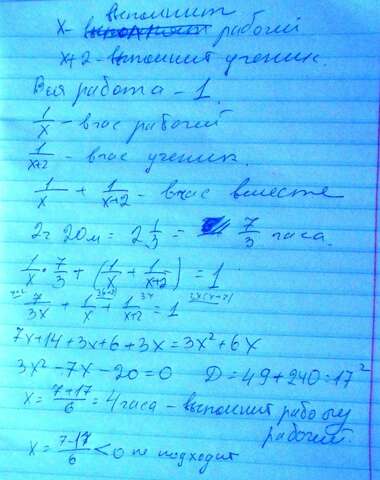 x - выполнит рабочий
x+2 - выполнит ученик.
Вся работа - 1.
1/x - в час рабочий
1/(x+2) - в час ученик.
1/x + 1/(x+2) - в час вместе
2ч 20м = 2 1/3 = 7/3 часа.
1/x · 7/3 + (1/x + 1/(x+2)) = 1
7/3x + 1/x + 1/(x+2) = 1
7x+14+3x+6+3x=3x²+6x
3x²-7x-20=0 D=49+240=17²
x = (7+17)/6 = 4 часа - выполнит работу
рабочий.
x = (7-17)/6 < 0 не подходит